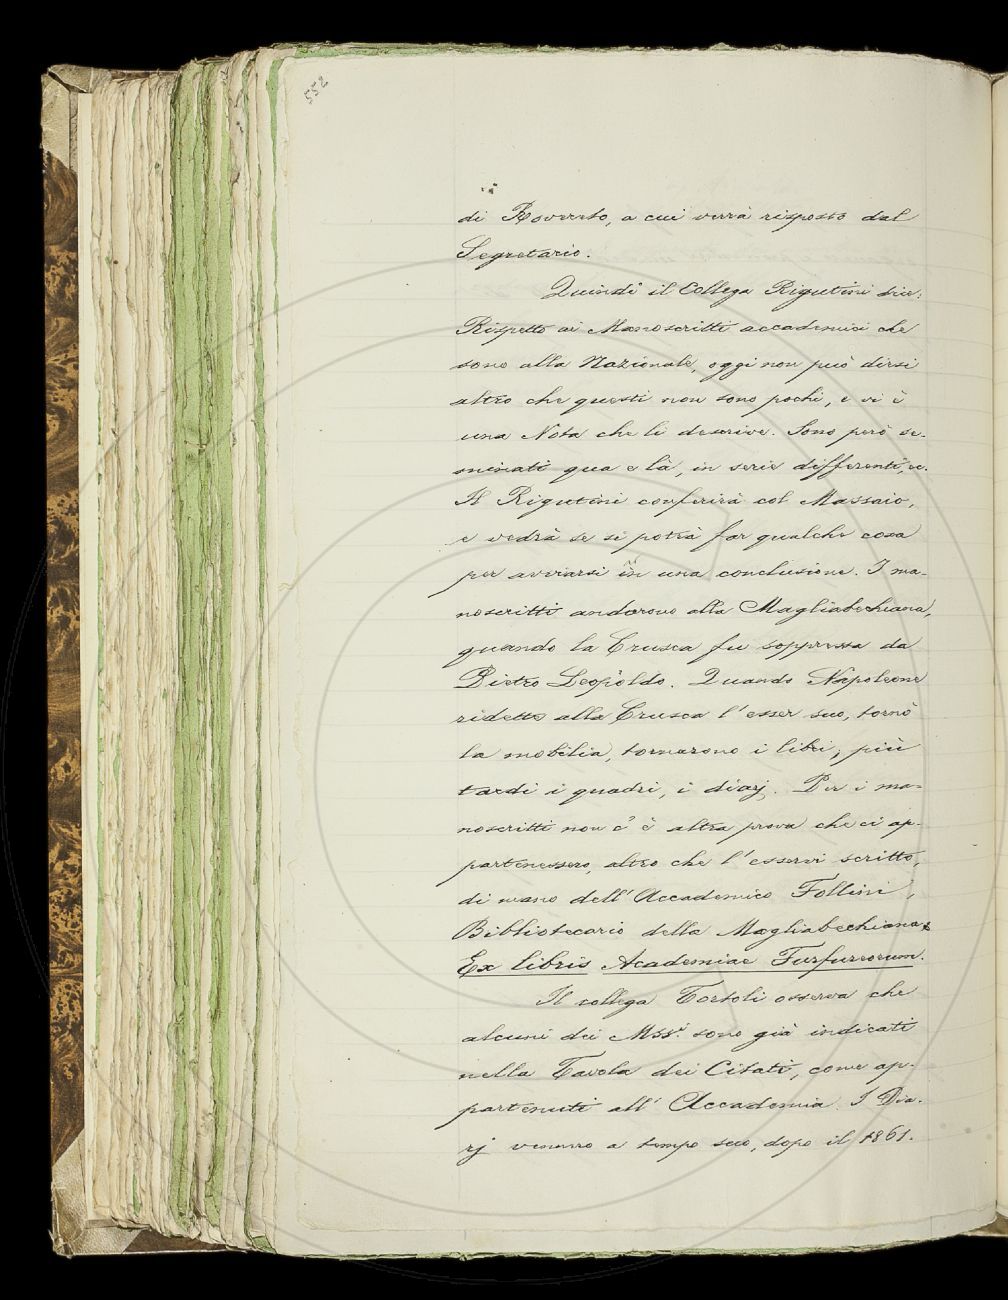 552
di Rovereto, a cui verrà risposto dal
Segretario.
Quindi il Collega Rigutini dice:
Rispetto ai Manoscritti accademici che
sono alla Nazionale, oggi non può dirsi
altro che questi non sono pochi, e vi è
una Nota che li descrive. Sono però se-
minati qua e là, in serie differenti, ec.
Il Rigutini conferirà col Massaio,
e vedrà se si potrà far qualche cosa
per avviarsi in una conclusione. I ma-
noscritti andarono alla Magliabechiana,
quando la Crusca fu soppressa da
Pietro Leopoldo. Quando Napoleone
ridette alla Crusca l'esser suo, tornò
la mobilia, tornarono i libri; più
tardi i quadri, i diarj. Per i ma-
noscritti non c'è altra prova che ci ap-
partenessero, altro che l'esservi scritto,
di mano dell'Accademico Follini,
Bibliotecario della Magliabechiana
Ex libris Academiae Furfureorum.
Il collega Tortoli osserva che
alcuni dei Mss.i sono già indicati
nella Tavola dei Citati, come ap-
partenuti all'Accademia. I Dia-
rj vennero a tempo suo, dopo il 1861.